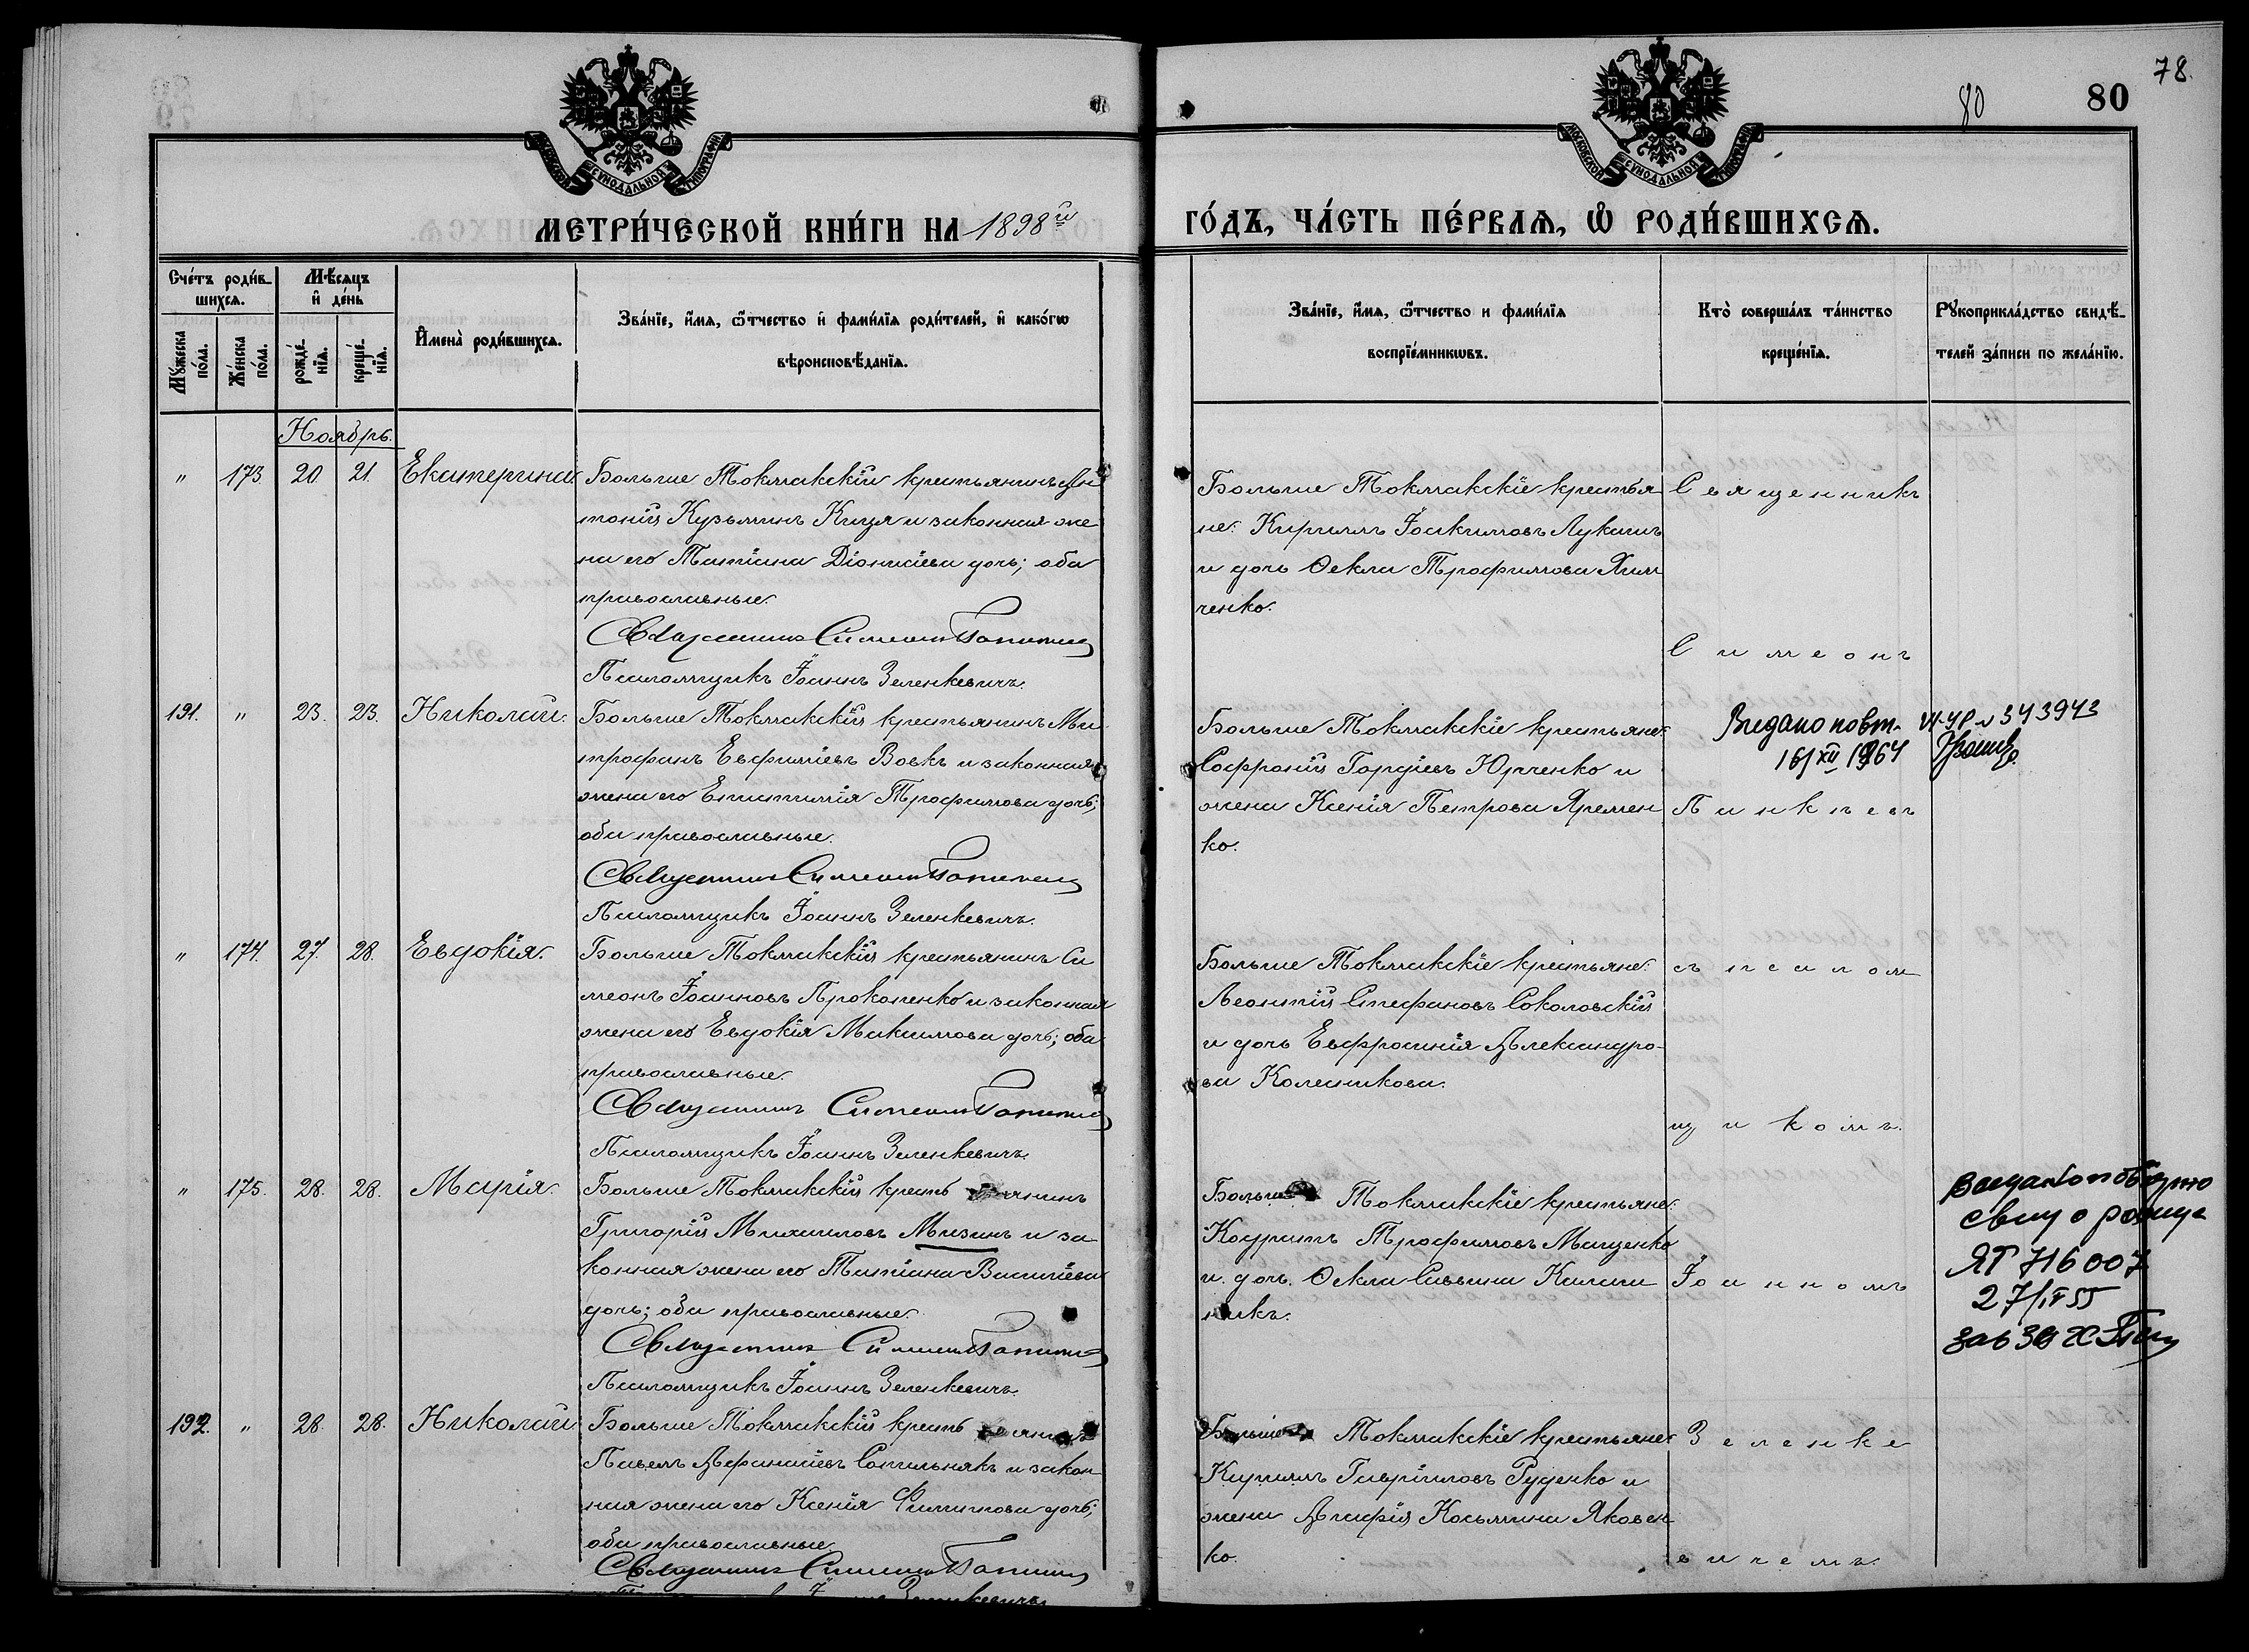 78.
80
80
МОСКОВСКОЙ СѴНОДАЛЬНОЙ ТИПОГРАФІИ
МОСКОВСКОЙ СѴНОДАЛЬНОЙ ТИПОГРАФІИ
МЕТРИ́ЧЕСКОЙ КНИ́ГИ НА 1898й
ГО́ДЪ, ЧА́СТЬ ПЕ́РВАѦ, Ѿ РОДИ́ВШИХСѦ.
Сче́тъ роди́в-
шихсѧ.
Мѣ́сѧцъ
и҆ де́нь
Мꙋ́жеска по́ла.
Же́нска по́ла.
рожде́-
нїѧ.
креще́-
нїѧ.
И҆мена̀ роди́вшихсѧ.
Зва́нїе, и҆́мѧ, ѻ҆́тчество и҆ фами́лїѧ роди́телей, и҆ како́гѡ
вѣроисповѣ́данїѧ.
Зва́нїе, и҆́мѧ, ѻ҆́тчество и фами́лїѧ
воспрїе́мникѡвъ.
Кто̀ соверша́лъ та́инство
креще́нїѧ.
Рꙋкоприкла́дство свидѣ́-
телей за́писи по жела́нїю.
Ноябрь.
" 173 20 21. Екатерина
Больше Токмакскій крестьянинъ Ан
тоній Кузьминъ Кица и законная же
на его Татіана Діонисіева дочь; оба
православные.
Священникъ Симеонъ
Псаломщикъ Іоаннъ Зеленкевичъ.
Больше Токмакскіе крестья
не: Кириллъ Іоакимовъ Лукашъ
и дочь Ѳекла Трофимова Хим
ченко.
Священникъ
Симеонъ
191. " 23. 23. Николай.
Больше Токмакскій крестьянинъ Ми
трофанъ Евфиміевъ Вовкъ и законная
жена его Епистимія Трофимова дочь;
оба православные.
Священникъ Симеонъ
Псаломщикъ Іоаннъ Зеленкевичъ.
Больше Токмакскіе крестьяне:
Софроній Гордіевъ Юрченко и
жена Ксенія Петрова Яремен
ко.
Видано повт.
16/XII 1964
№ 343943
" 174. 27. 28. Евдокія.
Больше Токмакскій крестьянинъ Си
меонъ Іоанновъ Прокопенко и законная
жена его Евдокія Максимова дочь; оба
православные.
Священникъ Симеонъ
Псаломщикъ Іоаннъ Зеленкевичъ.
Больше Токмакскіе крестьяне:
Леонтій Стефановъ Соколовскій
и дочь Евфросинія Александро-
ва Колесникова.
съ псалом
щикомъ.
" 175. 28. 28. Марія.
Больше Токмакскій кресть янинъ
Григорій Михаиловъ Мизинъ и за-
конная жена его Татіана Василіева
дочь; оба православные.
Священникъ Симеонъ
Псаломщикъ Іоаннъ Зеленкевичъ.
Больше Токмакскіе крестьяне:
Кодратъ Трофимовъ Маценко
и дочь Ѳекла Саввина Калаш
никъ.
Іоанномъ
свид о рожд
ЯГ 716007
27/IV 55
192. " 28. 28. Николай
Больше Токмакскій кресть янинъ
Павелъ Афанасіевъ Сопильнякъ и закон
ная жена его Ксенія Филиппова дочь;
оба православные.
Священникъ Симеонъ
Больше Токмакскіе крестьяне
Кириллъ Гавріиловъ Руденко и
жена Агафія Косьмина Яковен
ко.
Зеленке
вичемъ.